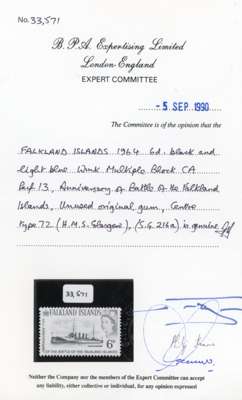 No. 33,571
B.P.A. Expertising Limited
London England
EXPERT COMMITTEE
- 5 SEP 1990
The Committee is of the opinion that the
FALKLAND ISLANDS 1964 6d. black and
light blue Wmk Multiple Block CA
Perf 13, Anniversary of Battle of the Falkland
Islands, Unused original gum, Centre
Type 72 (H.M.S. Glasgow), (S.G. 216a) is genuine
33,571
FALKLAND ISLANDS
OF THE BATTLE OF THE FALKLAND ISLANDS
6d
Neither the Company nor the members of the Expert Committee can accept
any liability, either collective or individual, for any opinion expressed